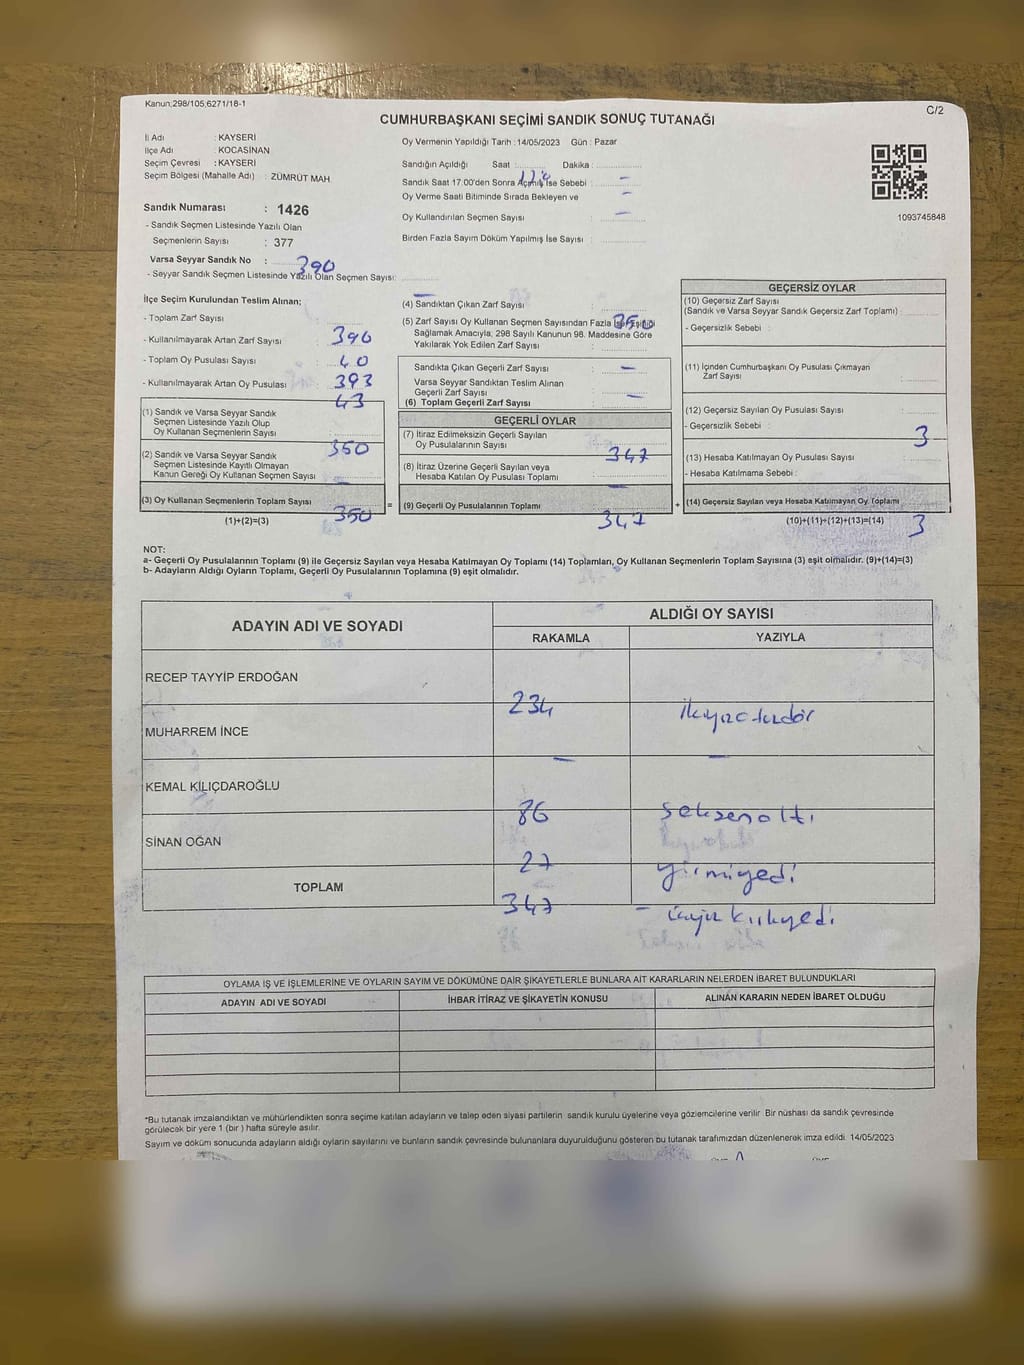 Kanun;298/105,6271/18-1
C/2
CUMHURBAŞKANI SEÇİMİ SANDIK SONUÇ TUTANAĞI
İl Adı : KAYSERİ
İlçe Adı : KOCASİNAN
Seçim Çevresi : KAYSERİ
Seçim Bölgesi (Mahalle Adı) : ZÜMRÜT MAH.
Sandık Numarası : 1426
- Sandık Seçmen Listesinde Yazılı Olan
Seçmenlerin Sayısı : 377
Varsa Seyyar Sandık No :
390
- Seyyar Sandık Seçmen Listesinde Yazılı Olan Seçmen Sayısı:
Oy Vermenin Yapıldığı Tarih : 14/05/2023 Gün : Pazar
Sandığın Açıldığı Saat Dakika :
Sandık Saat 17:00'den Sonra Açılmış İse Sebebi : –
Oy Verme Saati Bitiminde Sırada Bekleyen ve –
Oy Kullandırılan Seçmen Sayısı : –
Birden Fazla Sayım Döküm Yapılmış İse Sayısı :
1093745848
İlçe Seçim Kurulundan Teslim Alınan:
- Toplam Zarf Sayısı :
390
- Kullanılmayarak Artan Zarf Sayısı :
40
- Toplam Oy Pusulası Sayısı :
393
- Kullanılmayarak Artan Oy Pusulası :
43
(1) Sandık ve Varsa Seyyar Sandık
Seçmen Listesinde Yazılı Olup
Oy Kullanan Seçmenlerin Sayısı
350
(2) Sandık ve Varsa Seyyar Sandık
Seçmen Listesinde Kayıtlı Olmayan
Kanun Gereği Oy Kullanan Seçmen Sayısı
–
(3) Oy Kullanan Seçmenlerin Toplam Sayısı
350
(1)+(2)=(3)
=
–
(4) Sandıktan Çıkan Zarf Sayısı :
350
(5) Zarf Sayısı Oy Kullanan Seçmen Sayısından Fazla İse, Eşitliği
Sağlamak Amacıyla, 298 Sayılı Kanunun 98. Maddesine Göre
Yakılarak Yok Edilen Zarf Sayısı :
–
Sandıkta Çıkan Geçerli Zarf Sayısı :
Varsa Seyyar Sandıktan Teslim Alınan
Geçerli Zarf Sayısı : –
(6) Toplam Geçerli Zarf Sayısı
GEÇERLİ OYLAR
(7) İtiraz Edilmeksizin Geçerli Sayılan
Oy Pusulalarının Sayısı :
347
(8) İtiraz Üzerine Geçerli Sayılan veya
Hesaba Katılan Oy Pusulası Toplamı
–
(9) Geçerli Oy Pusulalarının Toplamı
347
+
GEÇERSİZ OYLAR
(10) Geçersiz Zarf Sayısı
(Sandık ve Varsa Seyyar Sandık Geçersiz Zarf Toplamı) :
- Geçersizlik Sebebi :
(11) İçinden Cumhurbaşkanı Oy Pusulası Çıkmayan
Zarf Sayısı :
(12) Geçersiz Sayılan Oy Pusulası Sayısı :
- Geçersizlik Sebebi :
3
(13) Hesaba Katılmayan Oy Pusulası Sayısı :
- Hesaba Katılmama Sebebi :
(14) Geçersiz Sayılan veya Hesaba Katılmayan Oy Toplamı
(10)+(11)+(12)+(13)=(14)
3
NOT:
a- Geçerli Oy Pusulalarının Toplamı (9) ile Geçersiz Sayılan veya Hesaba Katılmayan Oy Toplamı (14) Toplamları, Oy Kullanan Seçmenlerin Toplam Sayısına (3) eşit olmalıdır. (9)+(14)=(3)
b- Adayların Aldığı Oyların Toplamı, Geçerli Oy Pusulalarının Toplamına (9) eşit olmalıdır.
ADAYIN ADI VE SOYADI
ALDIĞI OY SAYISI
RAKAMLA YAZIYLA
RECEP TAYYİP ERDOĞAN
234
MUHARREM İNCE
– –
KEMAL KILIÇDAROĞLU
86 seksenaltı
SİNAN OĞAN
27 yirmiyedi
TOPLAM
347
OYLAMA İŞ VE İŞLEMLERİNE VE OYLARIN SAYIM VE DÖKÜMÜNE DAİR ŞİKAYETLERLE BUNLARA AİT KARARLARIN NELERDEN İBARET BULUNDUKLARI
ADAYIN ADI VE SOYADI İHBAR İTİRAZ VE ŞİKAYETİN KONUSU ALINAN KARARIN NEDEN İBARET OLDUĞU
*Bu tutanak imzalandıktan ve mühürlendikten sonra seçime katılan adayların ve talep eden siyasi partilerin sandık kurulu üyelerine veya gözlemcilerine verilir Bir nüshası da sandık çevresinde
görülecek bir yere 1 (bir ) hafta süreyle asılır.
Sayım ve döküm sonucunda adayların aldığı oyların sayılarını ve bunların sandık çevresinde bulunanlara duyurulduğunu gösteren bu tutanak tarafımızdan düzenlenerek imza edildi. 14/05/2023